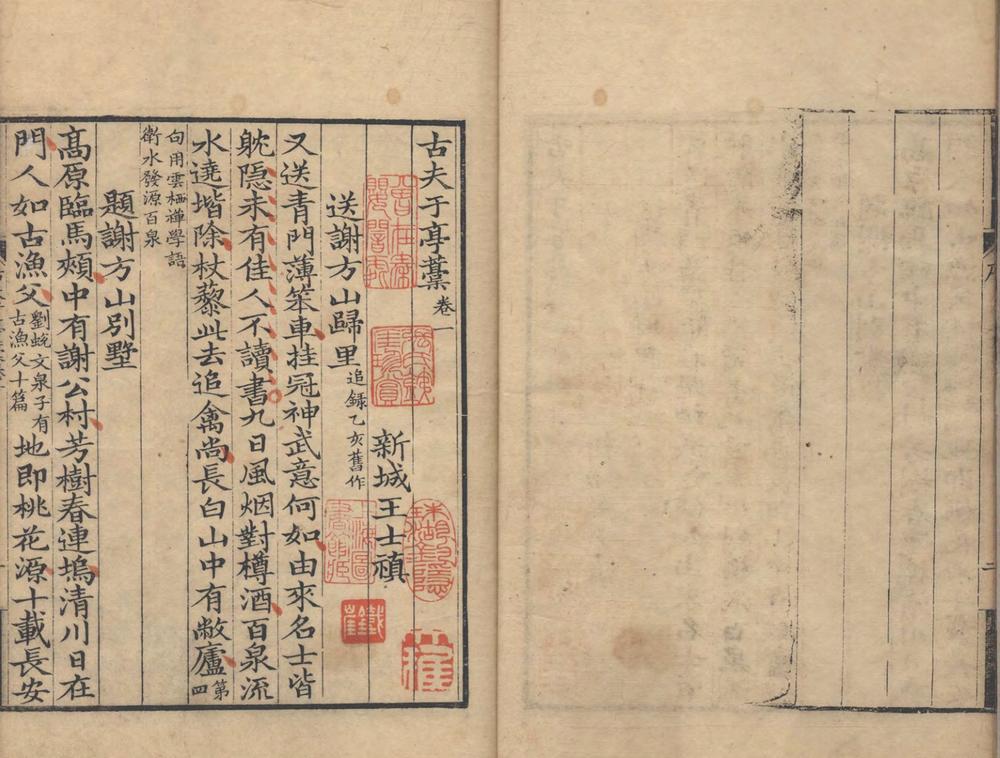 古夫于亭藁卷一
新城王士禛
送謝方山歸里追錄乙亥舊作
又送青門薄笨車挂冠神武意何如由來名士皆
躭隱未有佳人不讀書九日風烟對樽酒百泉流
水遶堦除杖藜此去追禽尚長白山中有敝廬第四
句用雲栖禪學語
衛水發源百泉
題謝方山別墅
高原臨馬頰中有謝公村芳樹春連塢清川日在
門人如古漁父劉蛻文泉子有古漁父十篇地即桃花源十載長安